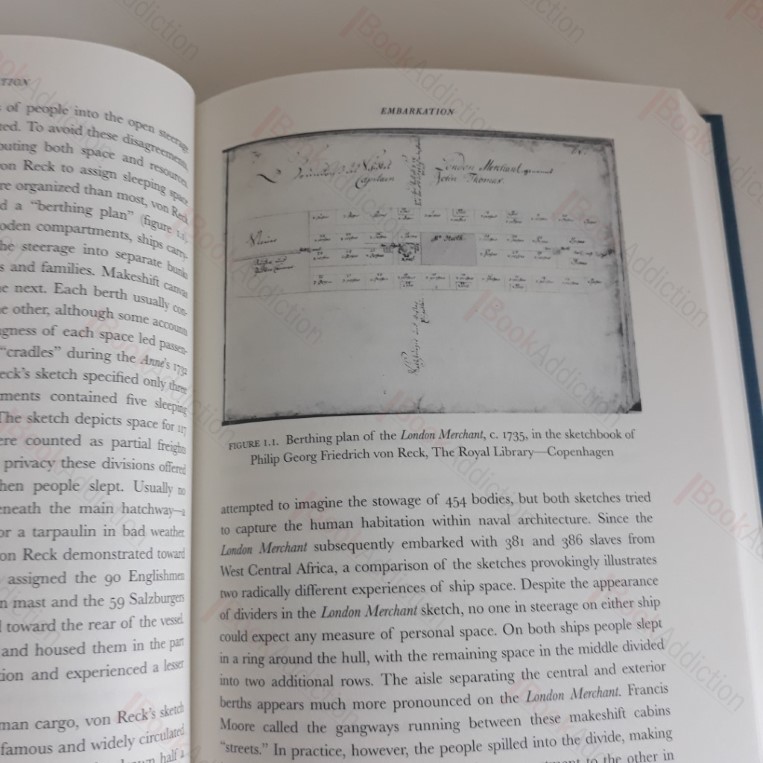 of people into the open steerage
ted. To avoid these disagreements
outing both space and resources
on Reck to assign sleeping space
re organized than most, von Reck
d a "berthing plan" (figure
oden compartments, ships carry-
he steerage into separate bunks
s and families. Makeshift canvas
e next. Each berth usually con-
e other, although some accounts
ngness of each space led passen-
"cradles" during the Anne's 1732
eck's sketch specified only three
ments contained five sleeping
The sketch depicts space for 117
ere counted as partial freights
privacy these divisions offered
hen people slept. Usually no
neath the main hatchway—a
or a tarpaulin in bad weather
on Reck demonstrated toward
assigned the 90 Englishmen
n mast and the 59 Salzburgers
l toward the rear of the vessel.
and housed them in the part
tion and experienced a lesser
man cargo, von Reck's sketch
famous and widely circulated
half a
EMBARKATION
London Merchant
Captain John Thomas
FIGURE 1.1. Berthing plan of the London Merchant, c. 1735, in the sketchbook of
Philip Georg Friedrich von Reck, The Royal Library—Copenhagen
attempted to imagine the stowage of 454 bodies, but both sketches tried
to capture the human habitation within naval architecture. Since the
London Merchant subsequently embarked with 381 and 386 slaves from
West Central Africa, a comparison of the sketches provokingly illustrates
two radically different experiences of ship space. Despite the appearance
of dividers in the London Merchant sketch, no one in steerage on either ship
could expect any measure of personal space. On both ships people slept
in a ring around the hull, with the remaining space in the middle divided
into two additional rows. The aisle separating the central and exterior
berths appears much more pronounced on the London Merchant. Francis
Moore called the gangways running between these makeshift cabins
"streets." In practice, however, the people spilled into the divide, making
to the other in
BookAddiction